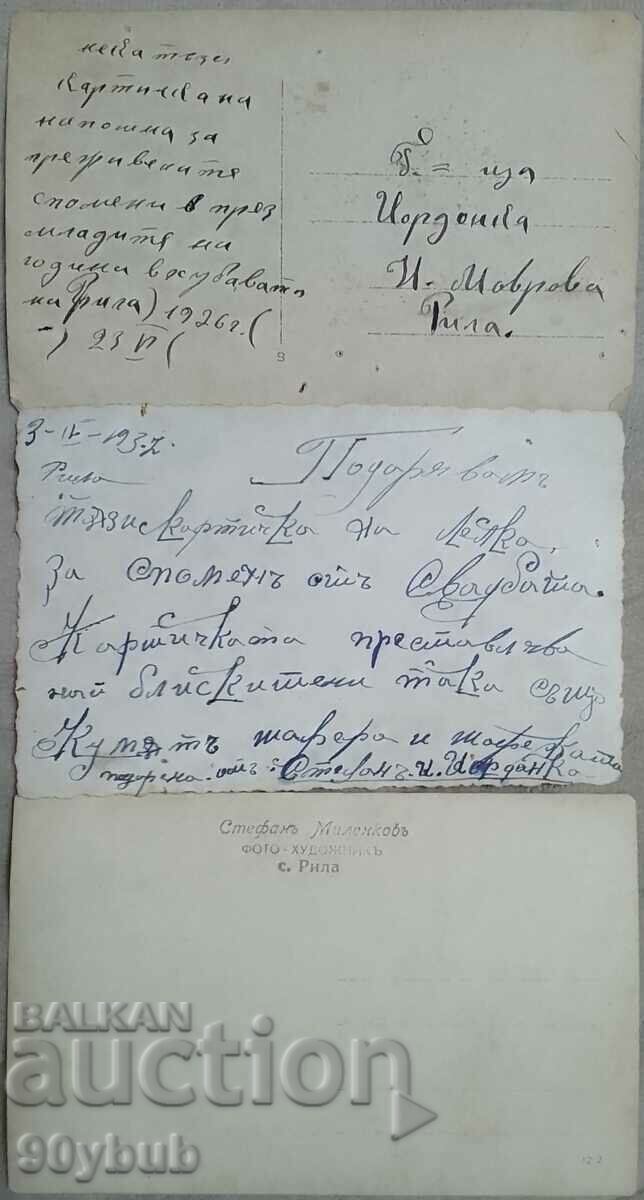 нека тази
картичка на
напомня за
преживелите
спомени в през
младите на
години в хубават.
на Рила) 1926 г. (
-) 23 VI (
Г. = ца
Иорданка
И. Маврова
Рила.
3-IV-1937.
Рила
Подарявамъ
тази картичка на Ленка,
за споменъ отъ Свадбата.
Картичката преставлява
най блискитени така също
Кумътъ шафера и шаферката
подарена отъ: Стефанъ. и. Иорданка
Стефанъ Миленковъ
ФОТО-ХУДОЖНИКЪ
с. Рила
BALKAN
auction
90ybub